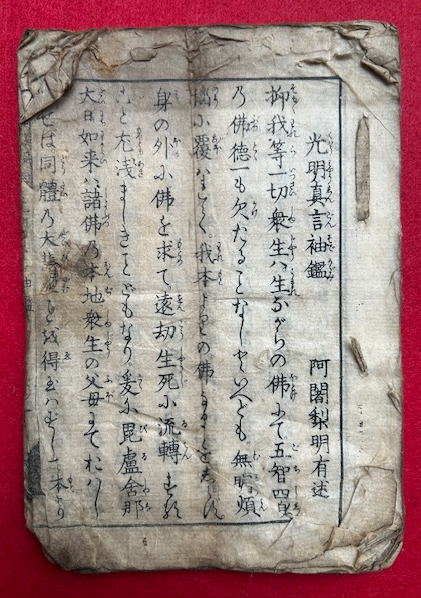 光明真言袖鑑
阿闍梨明有述
抑我等一切衆生ハ生ながらの佛にて五智四身
乃佛徳一も欠たることなしといへども無明煩
惱小覆はれて我本よりの佛なることをしらず
身の外小佛を求て遠劫生死小流轉
こと左浅ましきことどもなり爰小毘盧舎那
大日如来ハ諸佛乃本地衆生の父母まておハし
ませば同體乃大を得玉ハ本より